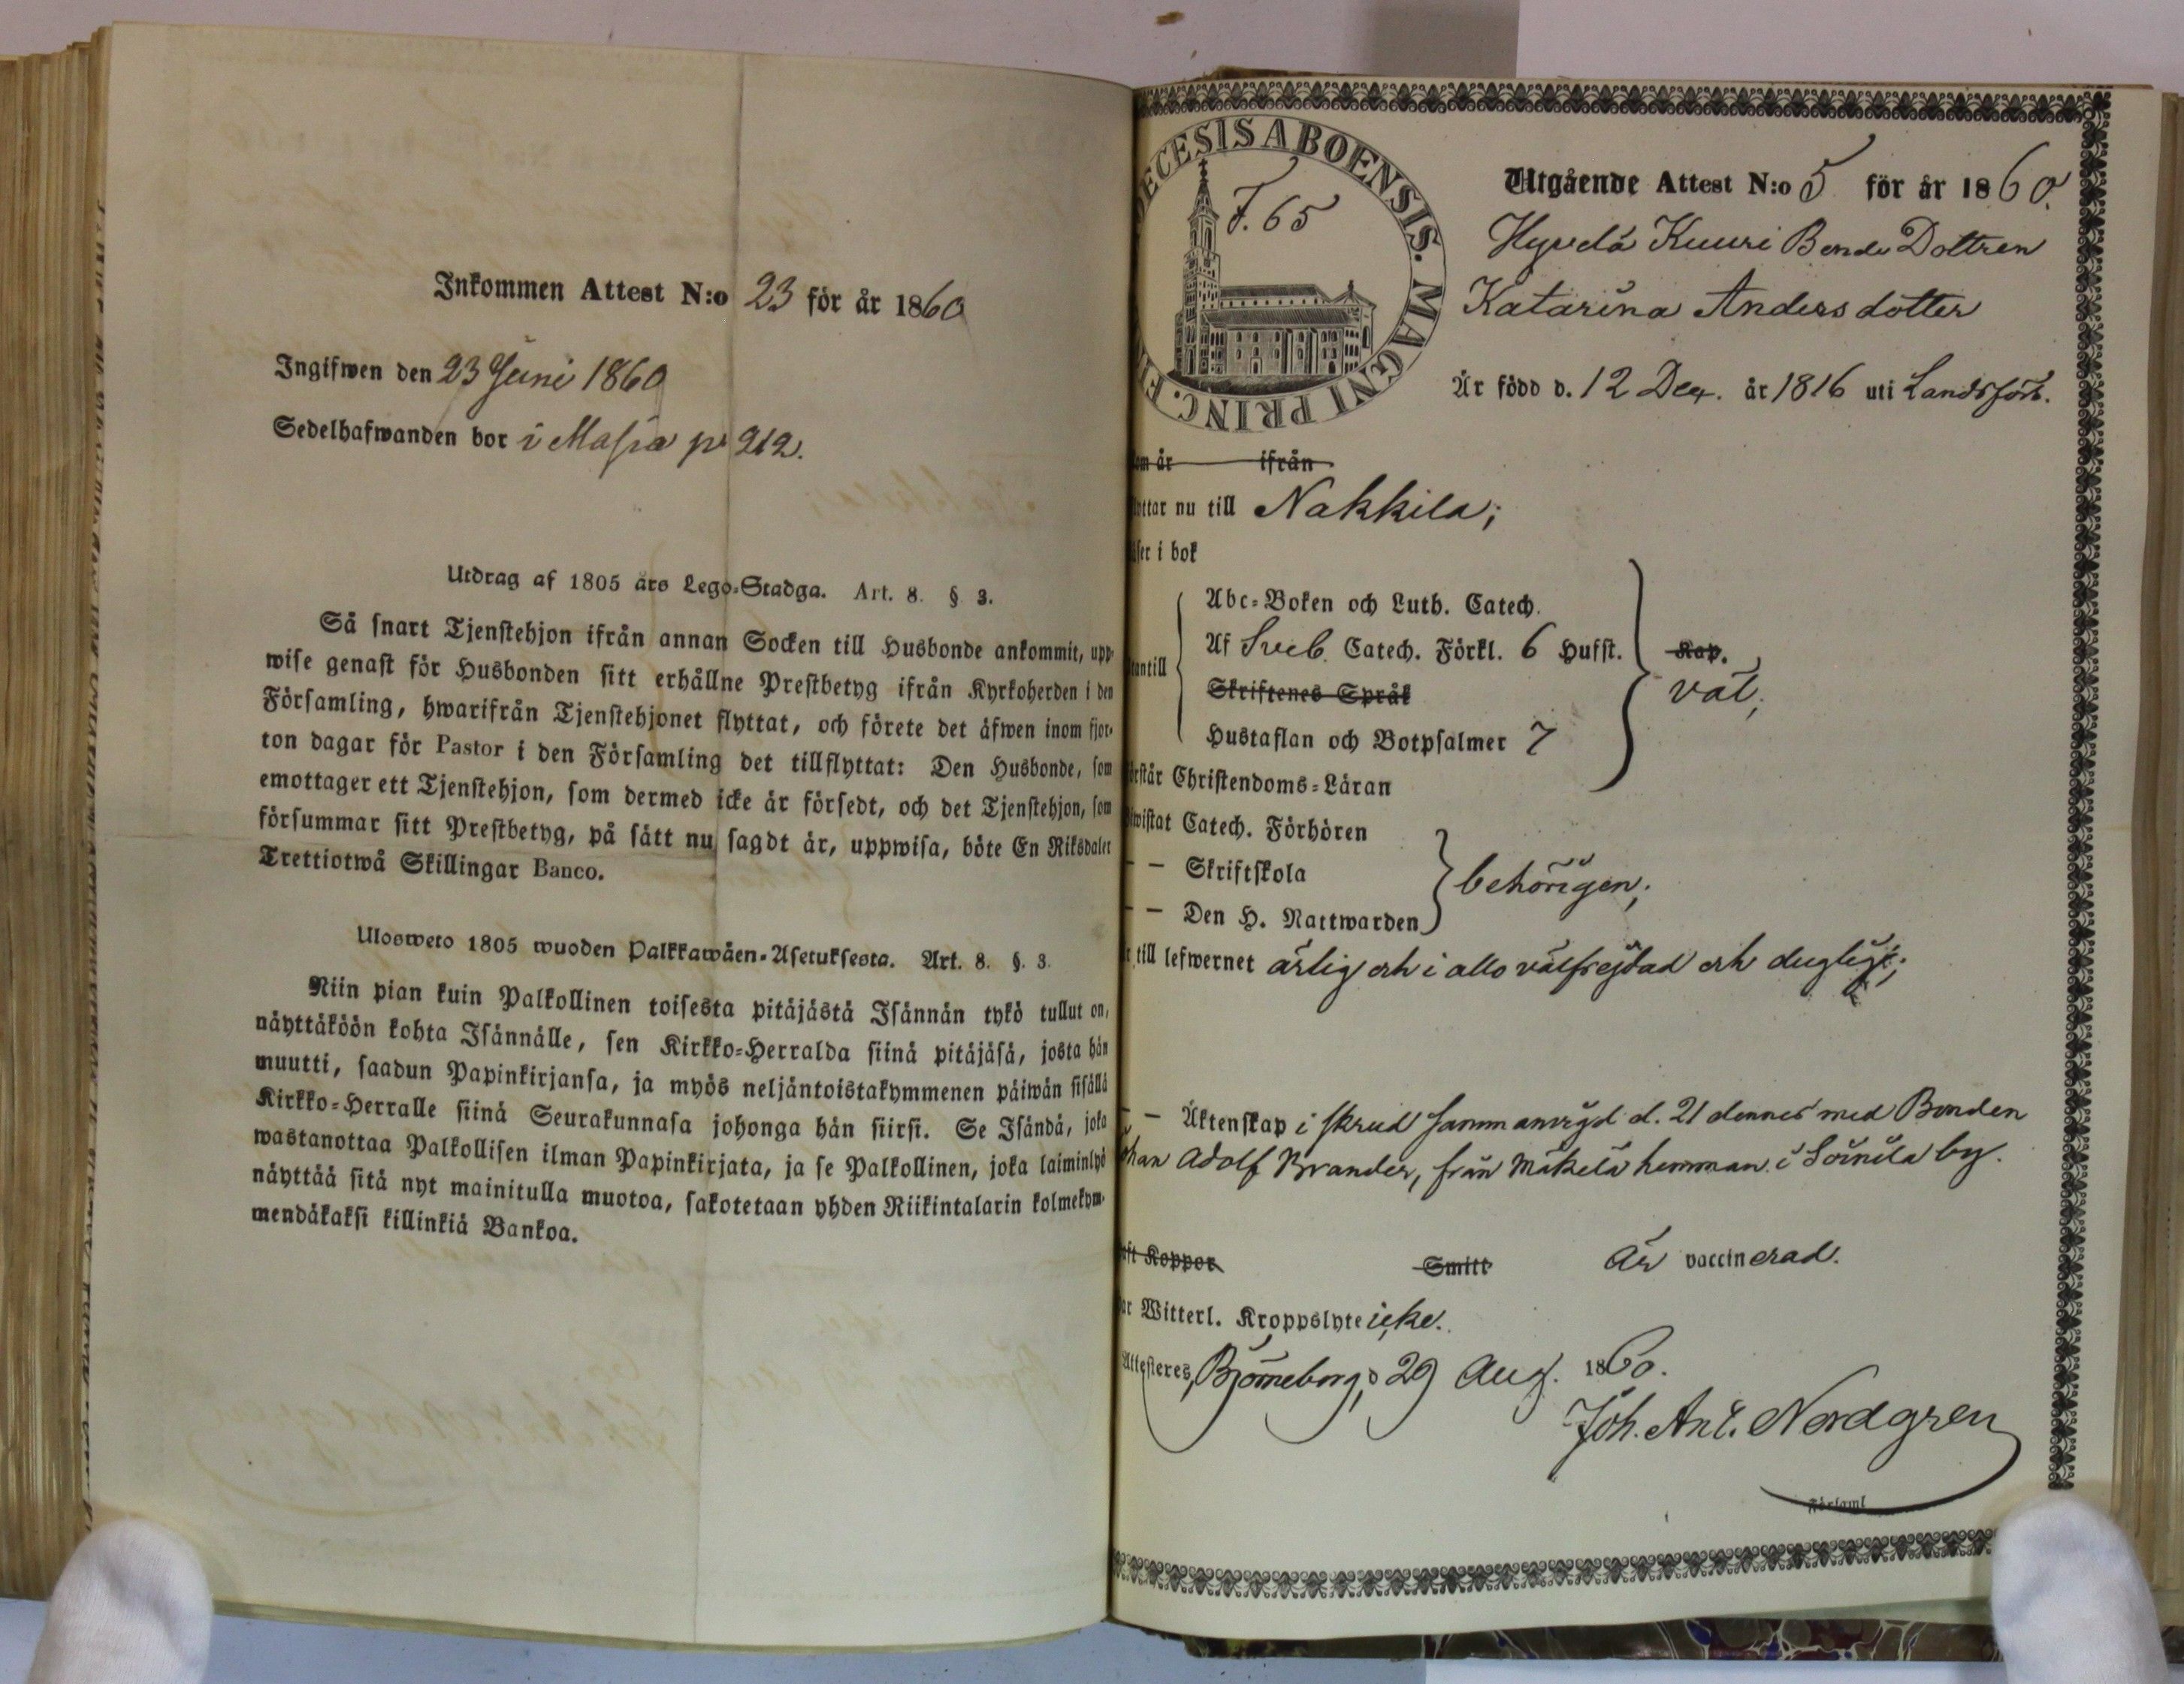 Inkommen Attest N:o 23 för år 1860
Ingifwen den 23 Juni 1860
Sedelhafwanden bor i Masia p 212.
Utdrag af 1805 års Lego-Stadga. Art. 8. § 3.
Så snart Tjenstehjon ifrån annan Socken till Husbonde ankommit, upp-
wise genast för Husbonden sitt erhållne Prestbetyg ifrån Kyrkoherden i den
Församling, hwarifrån Tjenstehjonet flyttat, och förete det äfwen inom fjor-
ton dagar för Pastor i den Församling det tillflyttat: Den Husbonde, som
emottager ett Tjenstehjon, som dermed icke är försedt, och det Tjenstehjon, som
försummar sitt Prestbetyg, på sätt nu sagdt är, uppwisa, böte En Riksdaler
Trettiotwå Skillingar Banco.
Ulosweto 1805 wuoden Palkkawäen-Asetuksesta. Art. 8. §. 3.
Niin pian kuin Palkollinen toisesta pitäjästä Isännän tykö tullut on,
näyttäköön kohta Isännälle, sen Kirkko-Herralda siinä pitäjäsä, josta hän
muutti, saadun Papinkirjansa, ja myös neljäntoistakymmenen päiwän sisällä
Kirkko-Herralle siinä Seurakunnasa johonga hän siirsi. Se Isändä, joka
wastanottaa Palkollisen ilman Papinkirjata, ja se Palkollinen, joka laiminlyö
näyttää sitä nyt mainitulla muotoa, sakotetaan yhden Riikintalarin kolmekym-
mendäkaksi killinkiä Bankoa.
ECESIS ABOENSIS. MAGNI PRINC. FI
F. 65
Utgående Attest N:o 5 för år 1860.
Hyvelä Kuuri Bonde Dottren
Katarina Anders dotter
Är född d. 12 Dec. år 1816 uti Landsförs.
om år ifrån
yttar nu till Nakkila;
äser i bok
Abc-Boken och Luth. Catech.
Af Sveb. Catech. Förkl. 6 Hufst. Kap.
antill
väl;
Skriftenes Språk
Hustaflan och Botpsalmer 7
erstår Christendoms-Läran
iwistat Catech. Förhören
– – Skriftskola
behörigen;
– – Den H. Nattwarden
till lefwernet ärlig och i allo välfrejdad och duglig;
– – Äktenskap i skrud sammanvigd d. 21 dennes med Bonden
han Adolf Brander, från Mäkelä hemman i Soinila by.
aft Koppor Smitt är vaccinerad.
ar Witterl. Kroppslyte icke.
Attesteres, Björneborg, d 29 Aug. 1860.
Joh. Ant. Nordgren
Förtaml